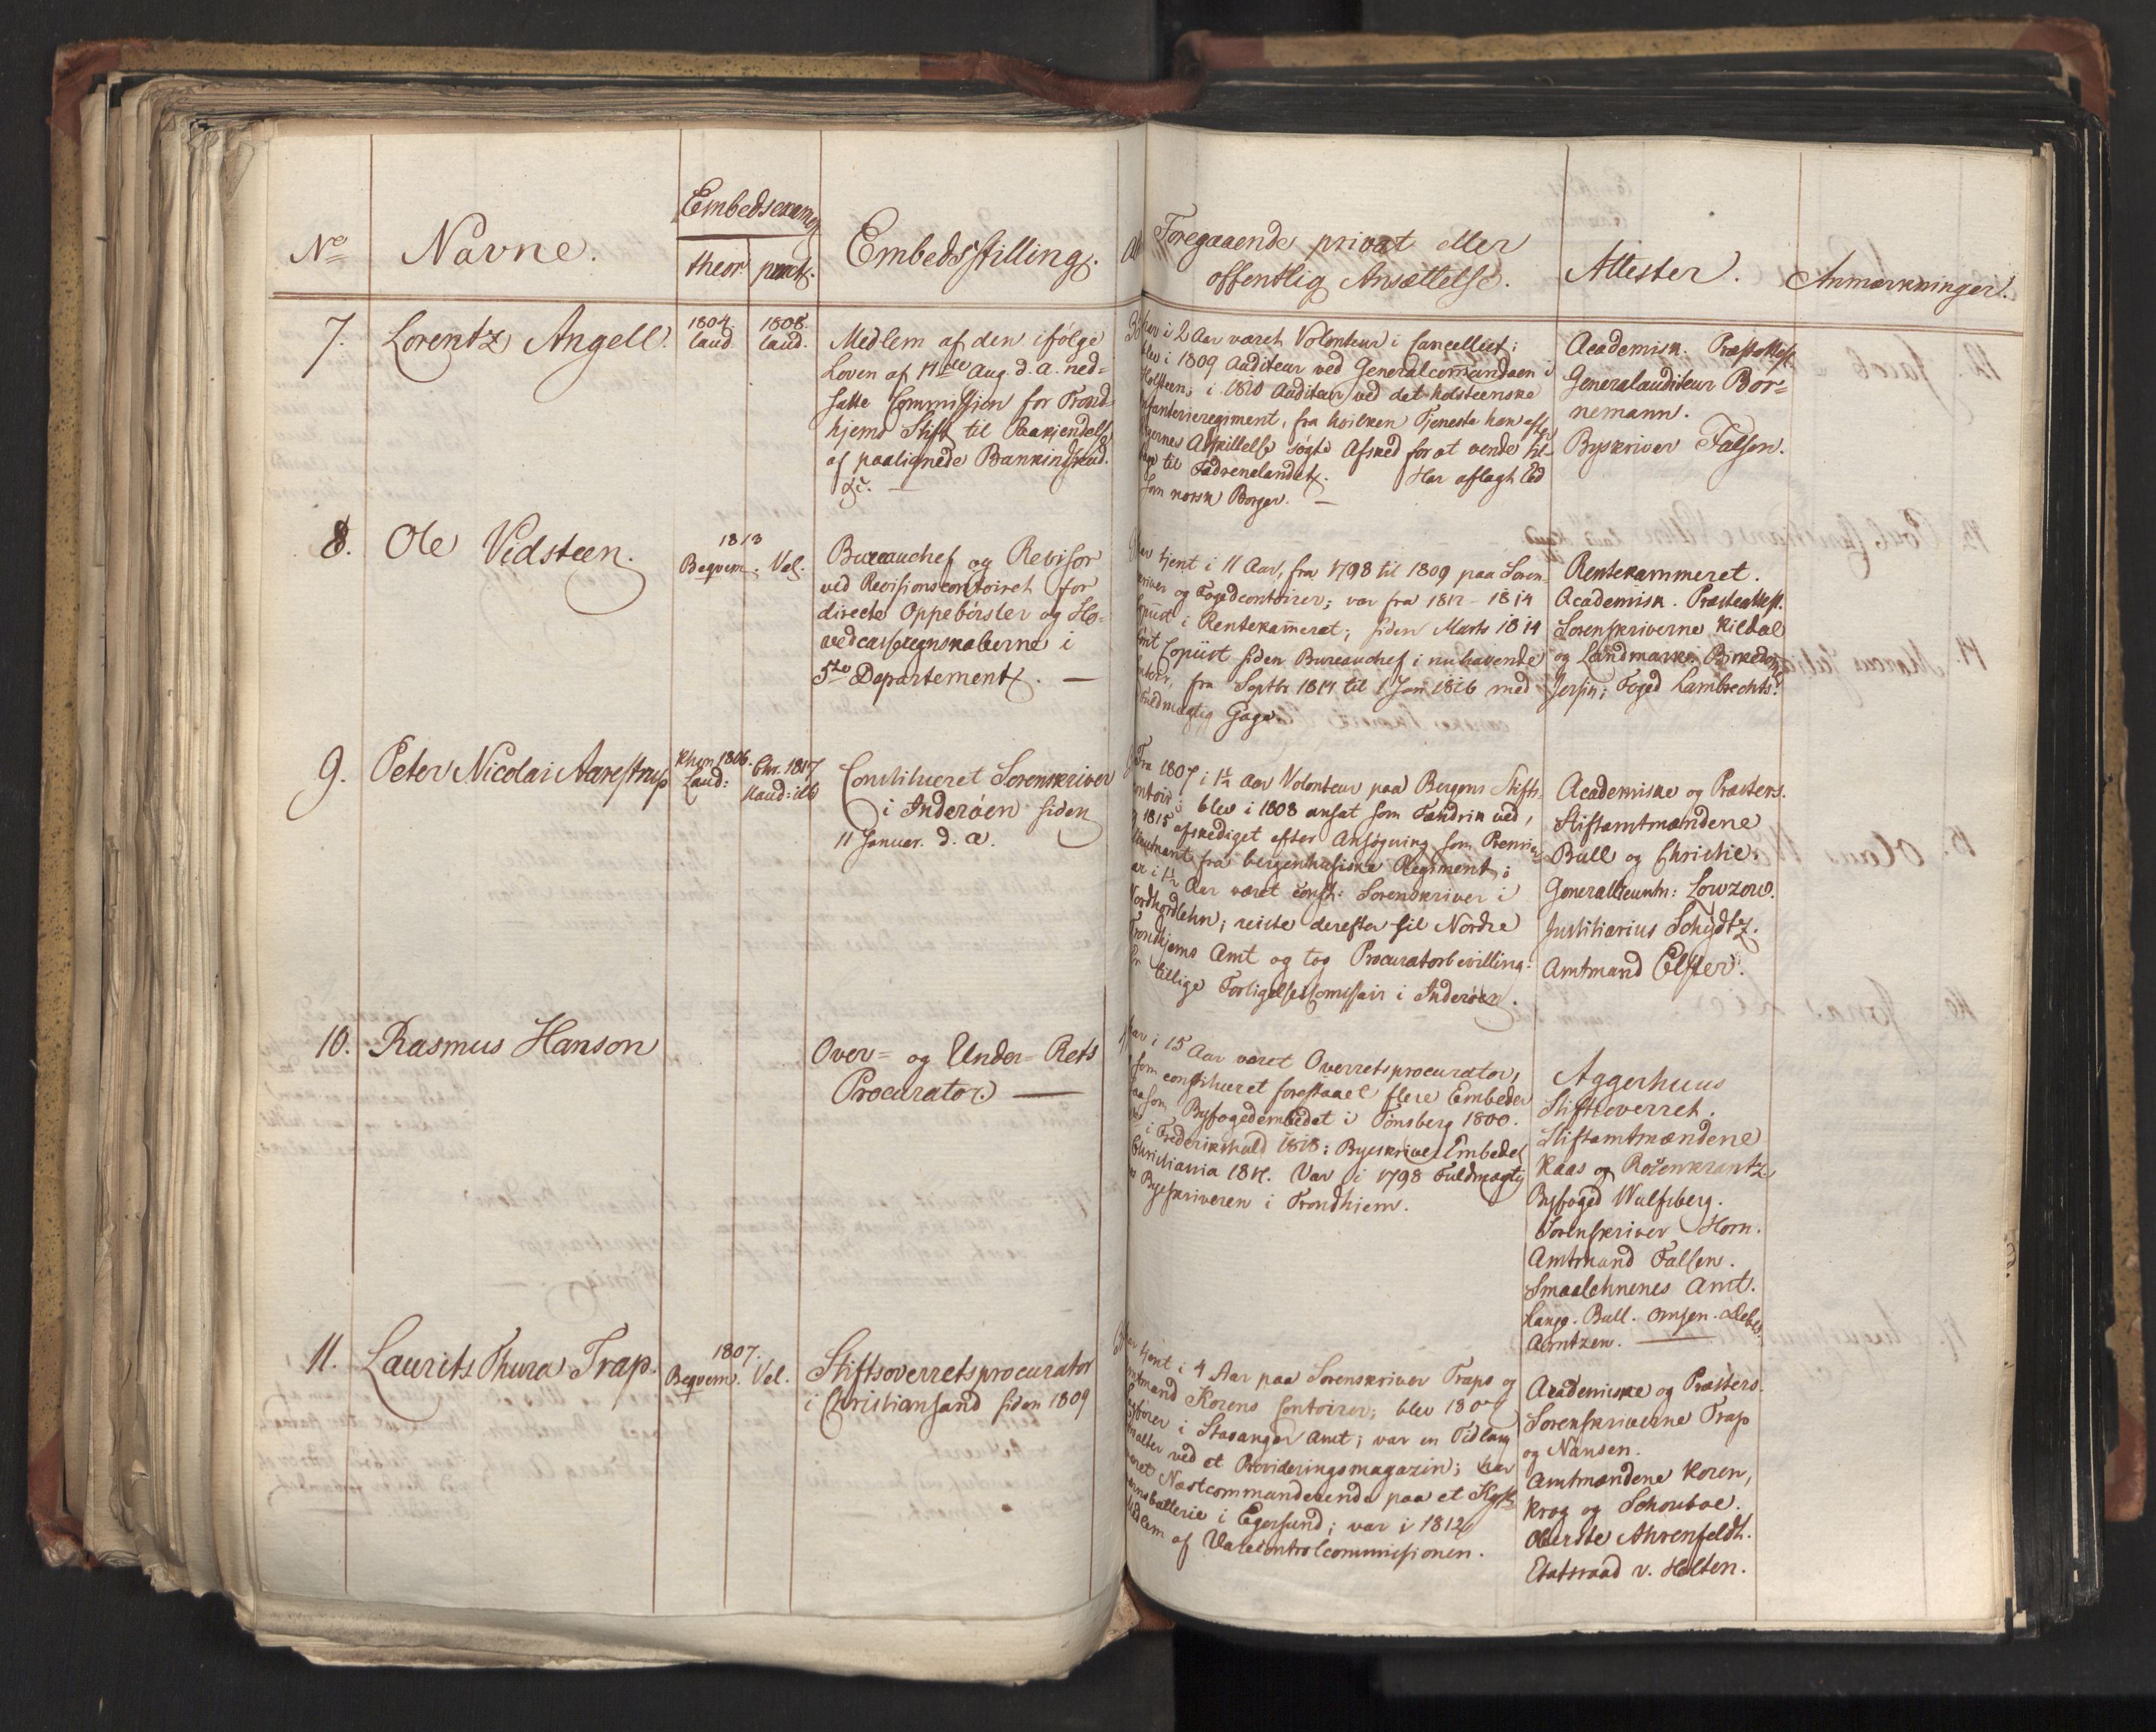 No
Navne.
Embedsexamen
theor. pract.
Embedsstilling.
Foregaaende privat eller
offentlig Ansættelse.
Attester.
Anmærkninger.
7. Lorentz Angell.
1804. 1808.
laud. laud.
Medlem af den ifölge
Loven af 17de Aug. d. a. ned=
satte Commission for Trond-
hjems Stift til Paakjendelse
af paalignede Bankindskud.
&c. —
Har i 2 Aar været Volonteur i Cancelliet;
blev i 1809 Auditeur ved Generalcommandoen i
Holsteen; i 1810 Auditeur ved det holsteenske
Infanterieregiment, fra hvilken Tjeneste han efter
Rigernes Adskillelse søgte Afsked for at vende til-
bage til Fædrenelandet. Har aflagt Eed
som norsk Borger. —
Academisk. Præsteattest.
Generalauditeur Bor=
nemann.
Byskriver Falsen.
8. Ole Vidsteen.
1813
Beqvem. Vel.
Bureauchef og Revisor
ved Revisionscontoiret for
directe Oppebörsler og Ho-
vedcasseregnskaberne i
5te Departement. —
Har tjent i 11 Aar, fra 1798 til 1809 paa Soren-
skriver og Fogedcontoirer; var fra 1812 - 1814
Copiist i Rentekammeret; siden Marts 1814
Copiist siden Bureauchef i nuhavende
fra Septbr 1814 til 1 Jan 1816 med
Fuldmægtig Gage.
Rentekammeret.
Academisk. Præsteattest.
Sorenskriverne Kildal
og Landmark. Birkedom.
Jersin; Foged Lambrechts.
9. Peter Nicolai Aarestrup
Khvn 1806. Chr. 1817
Laud: Haud: ill.
Constitueret Sorenskriver
i Inderöen siden
11 Januar. d. a.
Fra 1807 i 1½ Aar Volonteur paa Bergens Stifts-
contoir; blev i 1808 ansat som Fændrik ved,
og 1815 afskediget efter Ansøgning som Premier
Lieutenant fra bergenhusiske Regiment;
har i 1½ Aar været const: Sorenskriver i
Nordhordlehn; reiste derefter til Nordre
Trondhjems Amt og tog Procuratorbevilling:
Er tillige Forligelsescommissair i Inderöen.
Academiske og Præsters.
Stiftamtmændene
Bull og Christie.
Generallieutn: Lowzow.
Justitiarius Schydtz.
Amtmand Elster.
10. Rasmus Hanson
Over= og Under= Rets
Procurator. —
Har i 15 Aar været Overretsprocurator,
som constitueret forestaaet flere Embeder
saasom Byfogedembedet i Tönsberg 1800.
i Frederikshald 1818; Byeskriver Embedet
Christiania 1817. Var i 1798 Fuldmægtig
Byeskriveren i Trondhiem.
Aggerhuus
Stiftsoverret.
Stiftamtmændene
Kaas og Rosenkrantz.
Byfoged Wulfsberg.
Sorenskriver Horn.
Amtmand Falsen.
Smaalehnenes Amt.
Lange. Bull. Omsen. Debes.
Aerntzen. —
11. Laurits Thura Trap.
1807.
Beqvem. Vel.
Stiftsoverretsprocurator
i Christiansand siden 1809
Har tjent i 4 Aar paa Sorenskriver Traps og
Amtmand Korens Contoirer; blev 1807
Sagförer i Stavanger Amt; var en Tidlang
Forvalter ved et Provideringsmagazin; har
været Næstcommanderende paa et Kyst=
værnsbatterie i Egersund; var i 1812
Medlem af Varecontrolcommissionen.
Academiske og Præsters.
Sorenskriverne Trap
og Nansen.
Amtmændene Koren,
Krog og Schouboe.
Oberste Ahrenfeldt.
Etatsraad v. Holten.